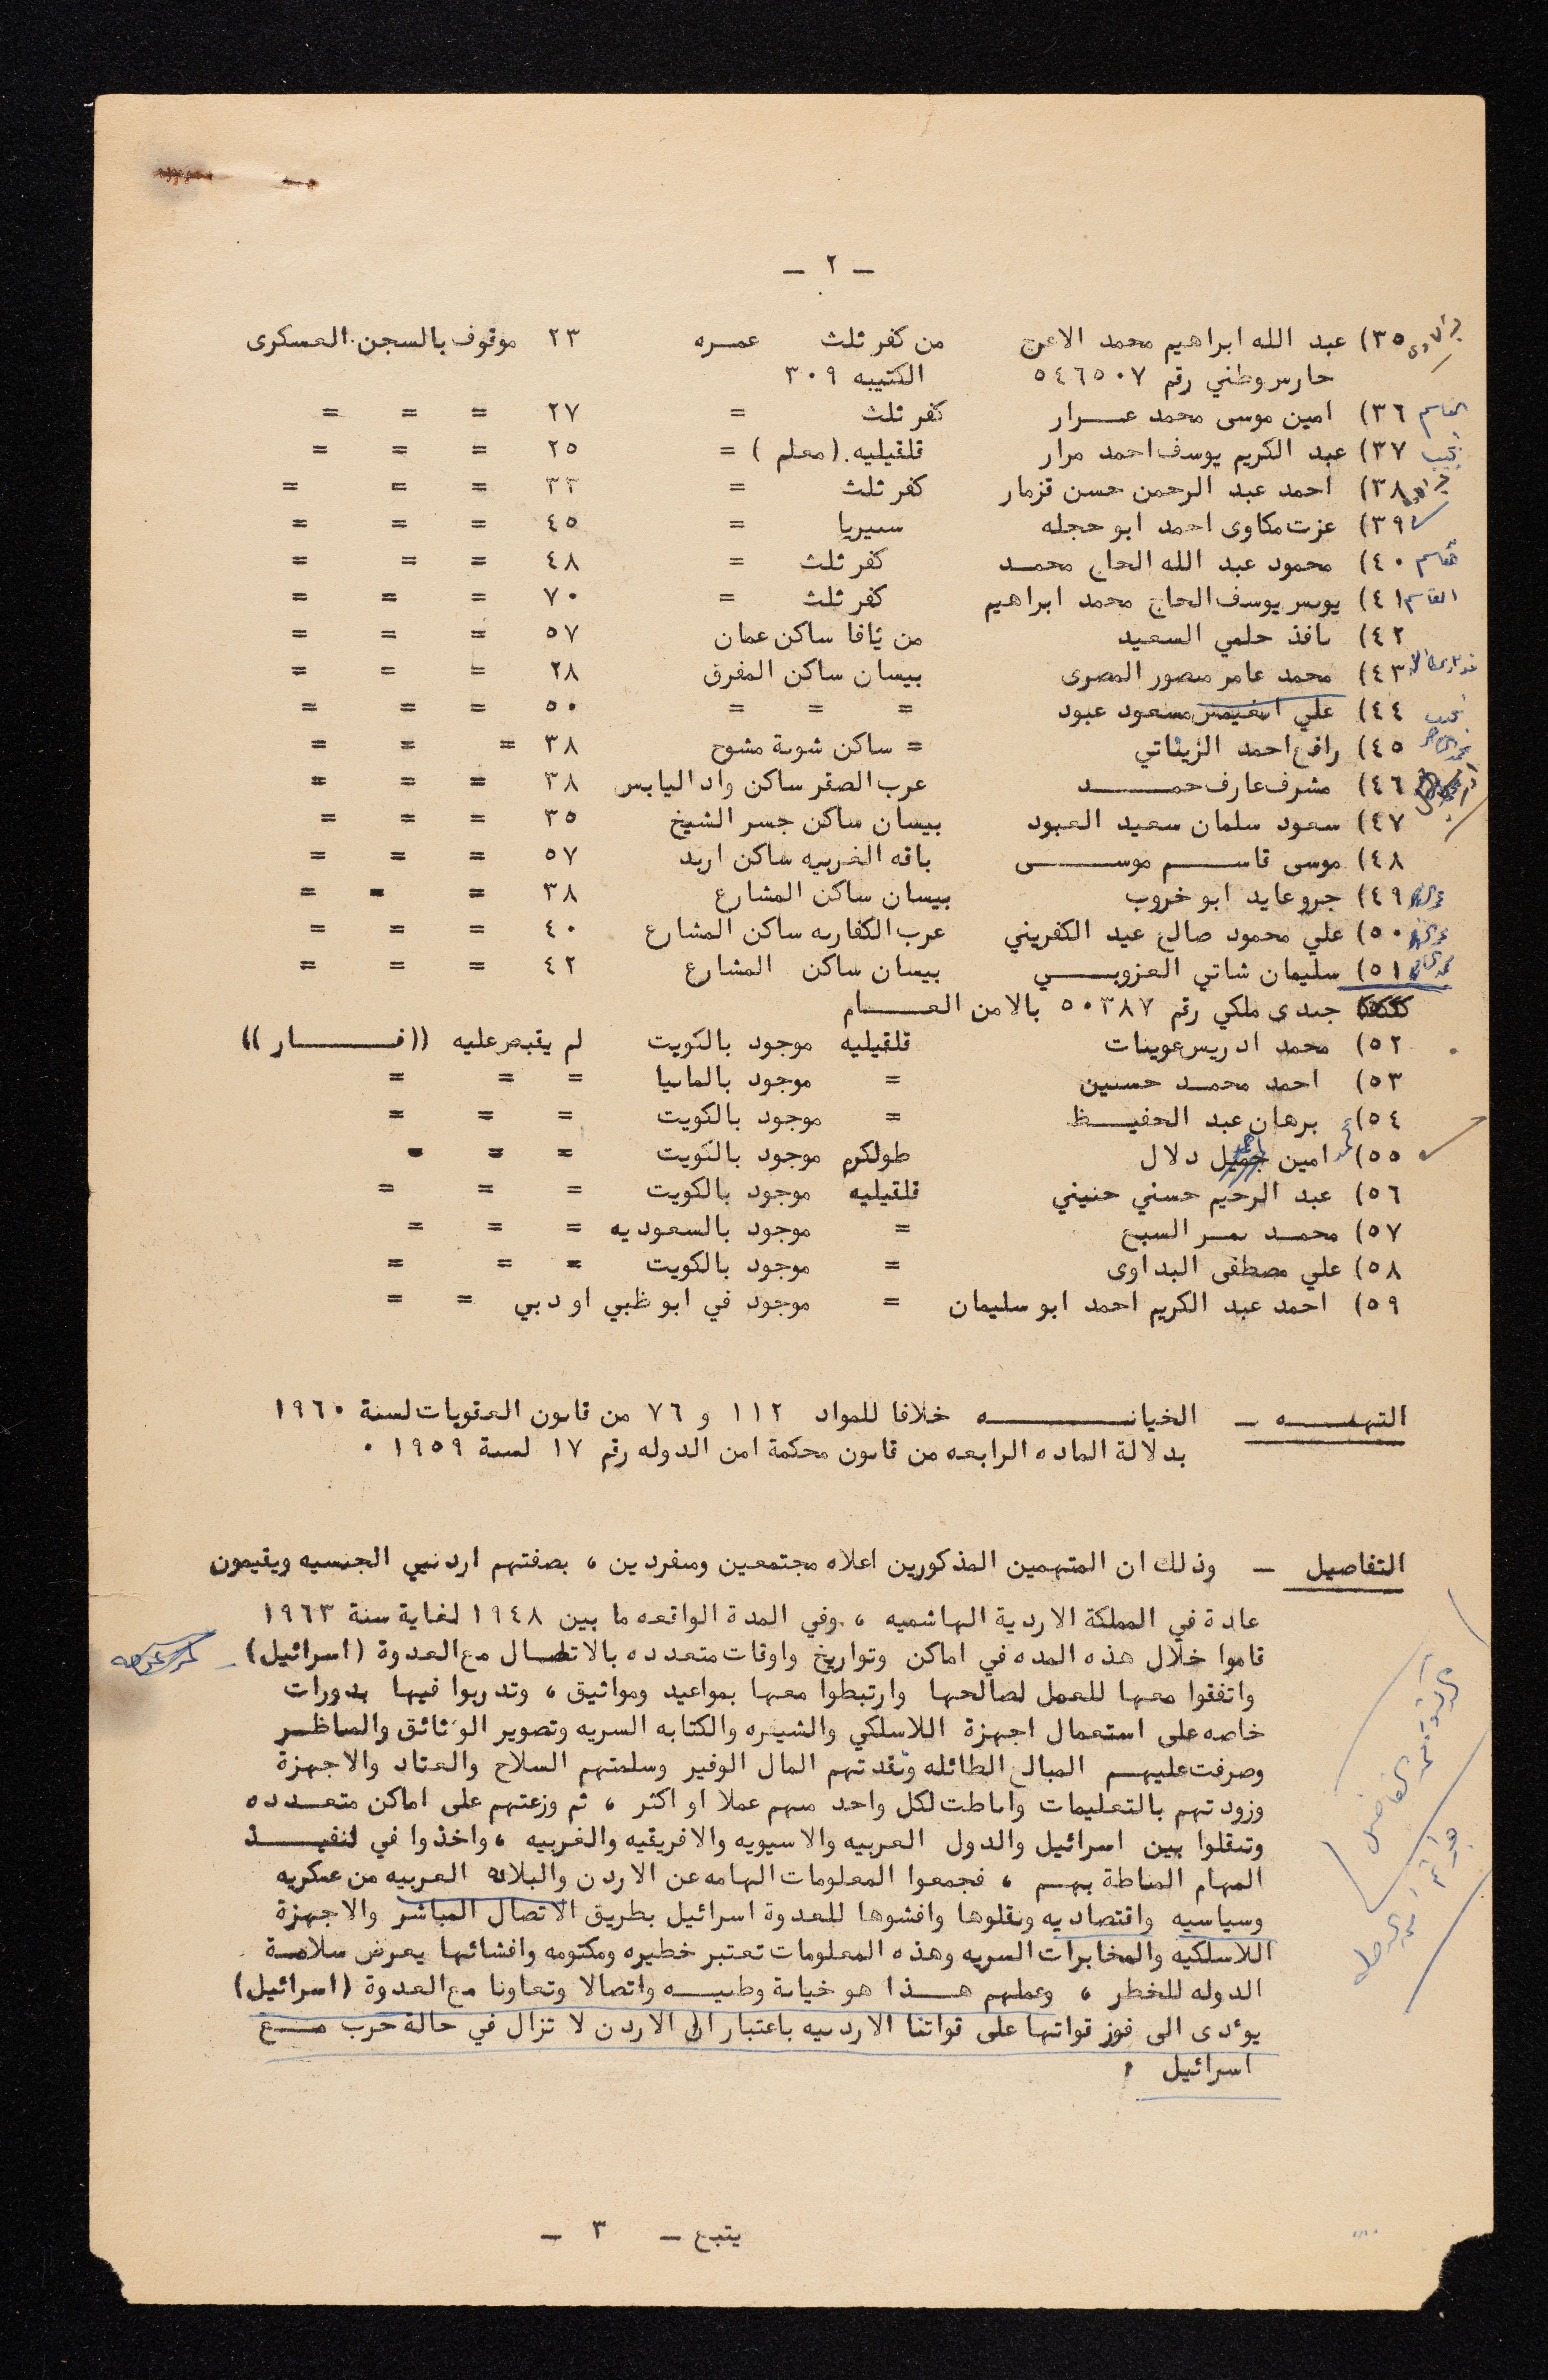 – ٢ –
٣٥) عبد الله ابراهيم محمد الاعرج من كفر ثلث عمره ٢٣ موقوف بالسجن العسكرى
حارس وطني رقم ٥٤٦٥٠٧ الكتيبه ٣٠٩
٣٦) امين موسى محمد عرار كفر ثلث = ٢٧ = = =
٣٧) عبد الكريم يوسف احمد مرار قلقيليه (معلم) = ٢٥ = = =
٣٨) احمد عبد الرحمن حسن قزمار كفر ثلث = ٣٣ = = =
٣٩) عزت مكاوى احمد ابو حجله سيريا = ٤٥ = = =
٤٠) محمود عبد الله الحاج محمد كفر ثلث = ٤٨ = = =
٤١) يونس يوسف الحاج محمد ابراهيم كفر ثلث = ٧٠ = = =
٤٢) نافذ حلمي السعيد من يافا ساكن عمان ٥٧ = = =
٤٣) محمد عامر منصور المصرى بيسان ساكن المفرق ٢٨ = = =
٤٤) علي مسعود عبود = = = ٥٠ = = =
٤٥) رافع احمد الزيناتي = ساكن شونة مشوح ٣٨ = = =
٤٦) مشرف عارف حمد عرب الصقر ساكن واد اليابس ٣٨ = = =
٤٧) سعود سلمان سعيد العبود بيسان ساكن جسر الشيخ ٣٥ = = =
٤٨) موسى قاسم موسى باقه الغربيه ساكن اربد ٥٧ = = =
٤٩) جرو عايد ابو خروب بيسان ساكن المشارع ٣٨ = = =
٥٠) علي محمود صالح عيد الكفريني عرب الكفارنه ساكن المشارع ٤٠ = = =
٥١) سليمان شاتي العزوبي بيسان ساكن المشارع ٤٢ = = =
جندى ملكي رقم ٥٠٣٨٧ بالامن العام
٥٢) محمد ادريس عوينات قلقيليه موجود بالكويت لم يقبض عليه ((فار))
٥٣) احمد محمد حسنين = موجود بالمانيا = = =
٥٤) برهان عبد الحفيظ = موجود بالكويت = = =
٥٥) محمد امين احمد دلال طولكرم موجود بالكويت = = =
٥٦) عبد الرحيم حسني حنيني قلقيليه موجود بالكويت = = =
٥٧) محمد نمر السبع = موجود بالسعوديه = = =
٥٨) علي مصطفى البداوى = موجود بالكويت = = =
٥٩) احمد عبد الكريم احمد ابو سليمان = موجود في ابو ظبي او دبي = =
التهمه – الخيانه خلافا للمواد ١١٢ و ٧٦ من قانون العقوبات لسنة ١٩٦٠
بدلالة الماده الرابعه من قانون محكمة امن الدوله رقم ١٧ لسنة ١٩٥٩ ٠
التفاصيل – وذلك ان المتهمين المذكورين اعلاه مجتمعين ومنفردين ، بصفتهم اردنيي الجنسيه ويقيمون
عادة في المملكة الاردنية الهاشميه ، وفي المدة الواقعه ما بين ١٩٤٨ لغاية سنة ١٩٦٣
قاموا خلال هذه المده في اماكن وتواريخ واوقات متعدده بالاتصال مع العدوة (اسرائيل)
واتفقوا معها للعمل لصالحها وارتبطوا معها بمواعيد ومواثيق ، وتدربوا فيها بدورات
خاصه على استعمال اجهزة اللاسلكي والشيفره والكتابه السريه وتصوير الوثائق والمناظر
وصرفت عليهم المبالغ الطائله ونقدتهم المال الوفير وسلمتهم السلاح والعتاد والاجهزة
وزودتهم بالتعليمات واناطت لكل واحد منهم عملا او اكثر ، ثم وزعتهم على اماكن متعدده
وتنقلوا بين اسرائيل والدول العربيه والاسيويه والافريقيه والغربيه ، واخذوا في تنفيذ
المهام المناطة بهم ، فجمعوا المعلومات الهامه عن الاردن والبلاد العربيه من عسكريه
وسياسيه واقتصاديه ونقلوها وافشوها للعدوة اسرائيل بطريق الاتصال المباشر والاجهزة
اللاسلكيه والمخابرات السريه وهذه المعلومات تعتبر خطيره ومكتومه وافشائها يعرض سلامة
الدوله للخطر ، وعملهم هذا هو خيانة وطنيه واتصالا وتعاونا مع العدوة (اسرائيل)
يؤدى الى فوز قواتها على قواتنا الاردنيه باعتبار ان الاردن لا تزال في حالة حرب مع
اسرائيل ٠
يتبع – ٣ –